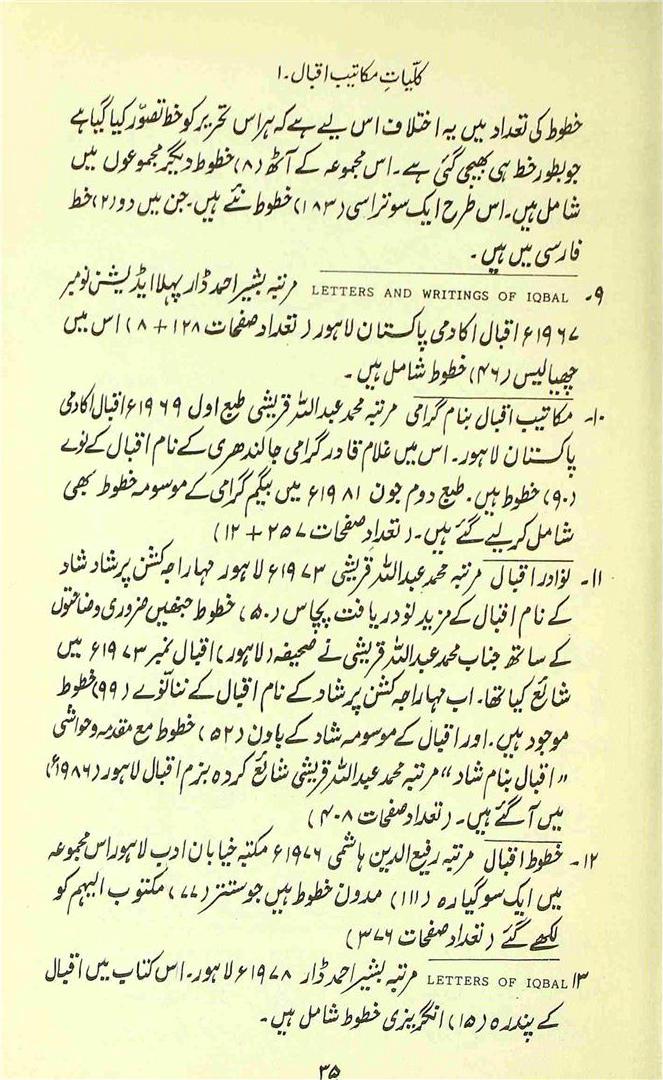 کلّیاتِ مکاتیب اقبال۔ ۱
خطوط کی تعداد میں یہ اختلاف اس لیے ہے کہ ہر اس تحریر کو خط تصوّر کیا گیا ہے
جو بطور خط ہی بھیجی گئی ہے۔ اس مجموعہ کے آٹھ (۸) خطوط دیگر مجموعوں میں
شامل ہیں۔ اس طرح ایک سو تراسی (۱۸۳) خطوط نئے ہیں۔ جن میں دو (۲) خط
فارسی میں ہیں۔
۹۔ LETTERS AND WRITINGS OF IQBAL مرتبہ بشیر احمد ڈار پہلا ایڈیشن نومبر
۱۹۶۷ء اقبال اکادمی پاکستان لاہور (تعداد صفحات ۱۲۸ + ۸) اس میں
چھیالیس (۴۶) خطوط شامل ہیں۔
۱۰۔ مکاتیب اقبال بنام گرامی مرتبہ محمد عبداللہ قریشی طبع اول ۱۹۶۹ء اقبال اکادمی
پاکستان لاہور۔ اس میں غلام قادر گرامی جالندھری کے نام اقبال کے نوے
(۹۰) خطوط ہیں۔ طبع دوم جون ۱۹۸۱ء میں بیگم گرامی کے موسومہ خطوط بھی
شامل کر لیے گئے ہیں۔ (تعدادِ صفحات ۲۵۷ + ۱۲)
۱۱۔ نوادر اقبال مرتبہ محمد عبداللہ قریشی ۱۹۷۳ء لاہور مہاراجہ کشن پرشاد شاد
کے نام اقبال کے مزید نو دریافت پچاس (۵۰) خطوط جنھیں ضروری وضاحتوں
کے ساتھ جناب محمد عبداللہ قریشی نے صحیفہ (لاہور) اقبال نمبر ۱۹۷۳ء میں
شائع کیا تھا۔ اب مہاراجہ کشن پرشاد کے نام اقبال کے ننانوّے (۹۹) خطوط
موجود ہیں۔ اور اقبال کے موسومہ شاد کے باون (۵۲) خطوط مع مقدمہ و حواشی
"اقبال بنام شاد" مرتبہ محمد عبداللہ قریشی شائع کردہ بزم اقبال لاہور (۱۹۸۶ء)
میں آ گئے ہیں۔ (تعداد صفحات ۴۰۸)
۱۲۔ خطوط اقبال مرتبہ رفیع الدین ہاشمی ۱۹۷۶ء مکتبہ خیابان ادب لاہور اس مجموعہ
میں ایک سو گیارہ (۱۱۱) مدون خطوط ہیں جو ستتر (۷۷) مکتوب الیہم کو
لکھے گئے (تعداد صفحات ۳۷۶)
۱۳ LETTERS OF IQBAL مرتبہ بشیر احمد ڈار ۱۹۷۸ء لاہور۔ اس کتاب میں اقبال
کے پندرہ (۱۵) انگریزی خطوط شامل ہیں۔
۳۵